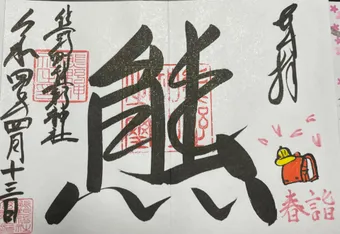 奉拝
春詣
熊
熊野町熊野神社
令和四年四月十三日